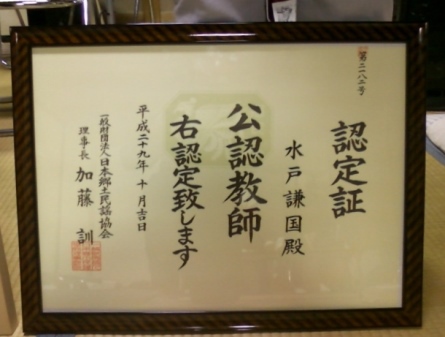 第二一八二号
認定証
水戸謙国殿
公認教師
右認定致します
平成二十九年十月吉日
一般財団法人日本郷土民謡協会
理事長 加藤 訓